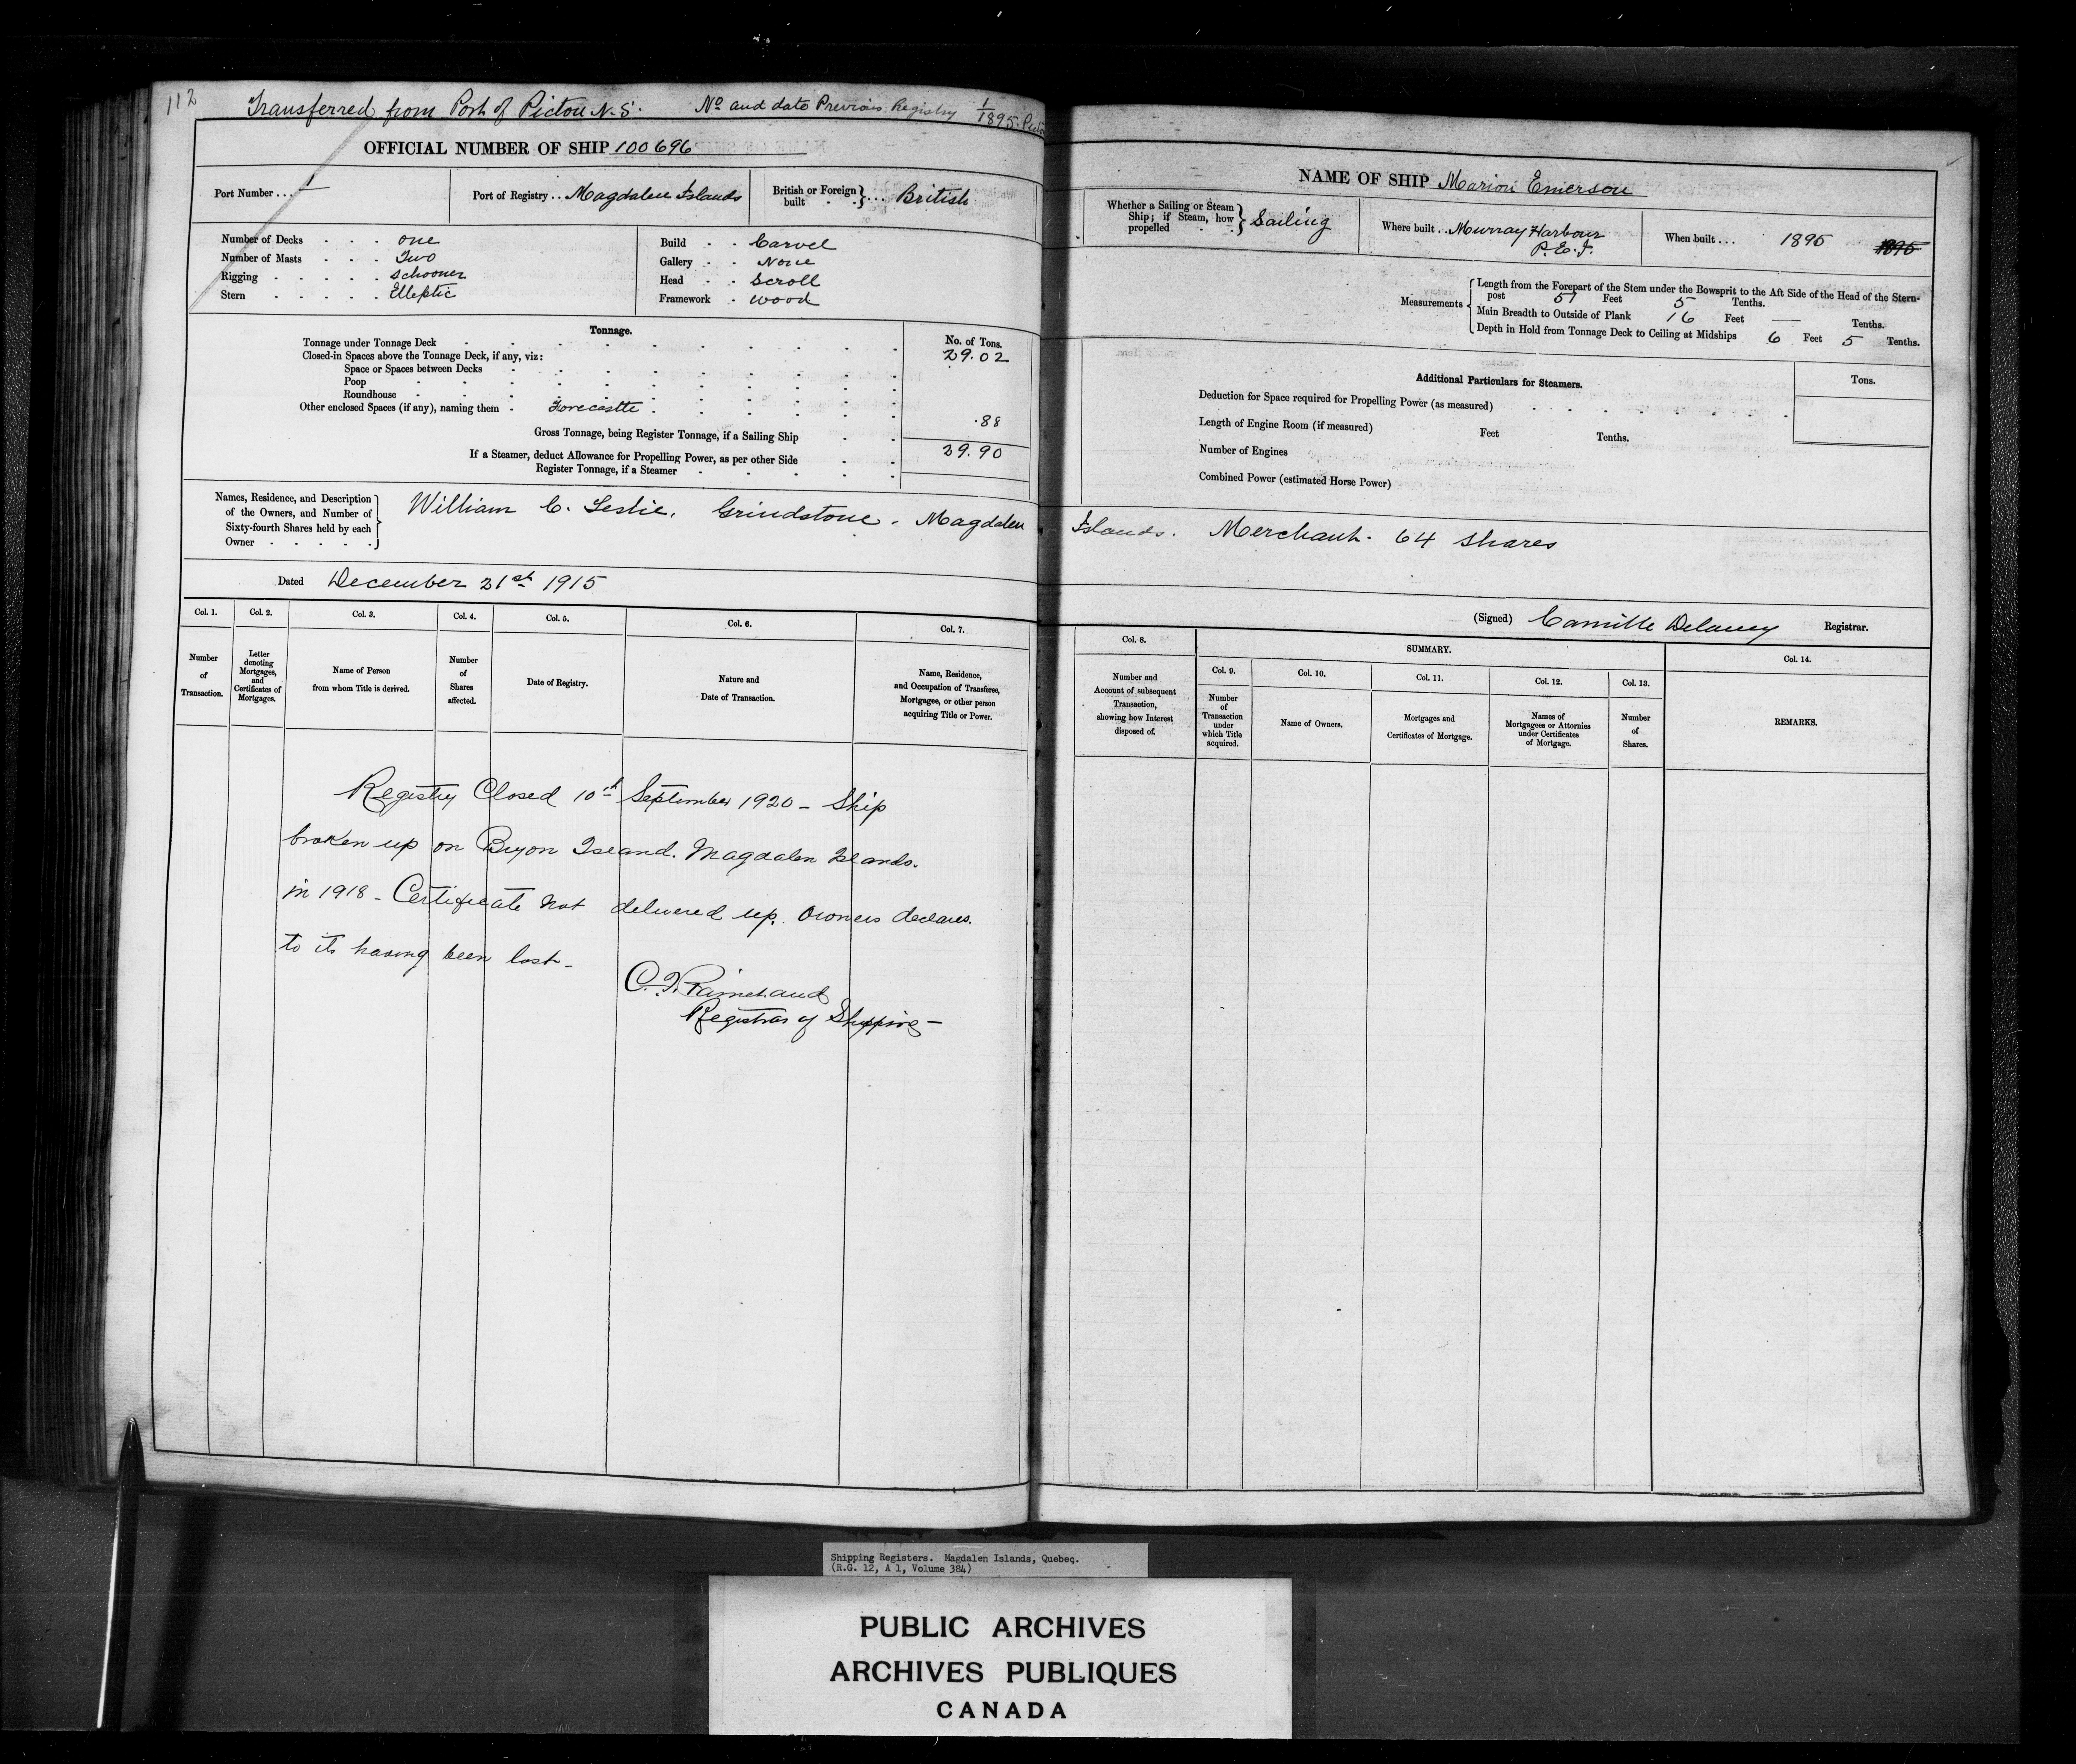 112
Transferred from Port of Pictou N.S. No and date Previous Registry 1/1895. Pictou
OFFICIAL NUMBER OF SHIP 100696
Port Number . . . 1
Port of Registry . . Magdalen Islands
British or Foreign built } . . . British
Number of Decks . . . one
Number of Masts . . . Two
Rigging . . . . . Schooner
Stern . . . . . Elleptic
Build . . Carvel
Gallery . . None
Head . . Scroll
Framework . wood
Tonnage.
No. of Tons.
Tonnage under Tonnage Deck 29.02
Closed-in Spaces above the Tonnage Deck, if any, viz:
Space or Spaces between Decks
Poop
Roundhouse
Other enclosed Spaces (if any), naming them . Forecastle .88
Gross Tonnage, being Register Tonnage, if a Sailing Ship 29.90
If a Steamer, deduct Allowance for Propelling Power, as per other Side
Register Tonnage, if a Steamer
Names, Residence, and Description
of the Owners, and Number of
Sixty-fourth Shares held by each
Owner
William C. Leslie. Grindstone. Magdalen
Dated December 21st 1915
Col. 1. Col. 2. Col. 3. Col. 4. Col. 5. Col. 6. Col. 7.
Number of Transaction.
Letter denoting Mortgages, and Certificates of Mortgages.
Name of Person from whom Title is derived.
Number of Shares affected.
Date of Registry.
Nature and Date of Transaction.
Name, Residence, and Occupation of Transferee, Mortgagee, or other person acquiring Title or Power.
Registry Closed 10th September 1920 - Ship
broken up on Bryon Island. Magdalen Islands.
in 1918 - Certificate not delivered up. Owners declares.
to its having been lost -
Registrar of Shipping -
NAME OF SHIP Marion Emerson
Whether a Sailing or Steam
Ship; if Steam, how
propelled } Sailing
Where built . . Murray Harbour
P.E.I.
When built . . . 1895 1895
Measurements
Length from the Forepart of the Stem under the Bowsprit to the Aft Side of the Head of the Stern-
post 51 Feet 5 Tenths.
Main Breadth to Outside of Plank 16 Feet — Tenths.
Depth in Hold from Tonnage Deck to Ceiling at Midships 6 Feet 5 Tenths.
Additional Particulars for Steamers.
Tons.
Deduction for Space required for Propelling Power (as measured)
Length of Engine Room (if measured) Feet Tenths.
Number of Engines
Combined Power (estimated Horse Power)
Islands. Merchant. 64 shares
(Signed) Camille Delaney Registrar.
Col. 8.
SUMMARY.
Col. 9. Col. 10. Col. 11. Col. 12. Col. 13.
Col. 14.
Number and Account of subsequent Transaction, showing how Interest disposed of.
Number of Transaction under which Title acquired.
Name of Owners.
Mortgages and Certificates of Mortgage.
Names of Mortgagees or Attornies under Certificates of Mortgage.
Number of Shares.
REMARKS.
Shipping Registers. Magdalen Islands, Quebec.
(R.G. 12, A 1, Volume 384)
PUBLIC ARCHIVES
ARCHIVES PUBLIQUES
CANADA